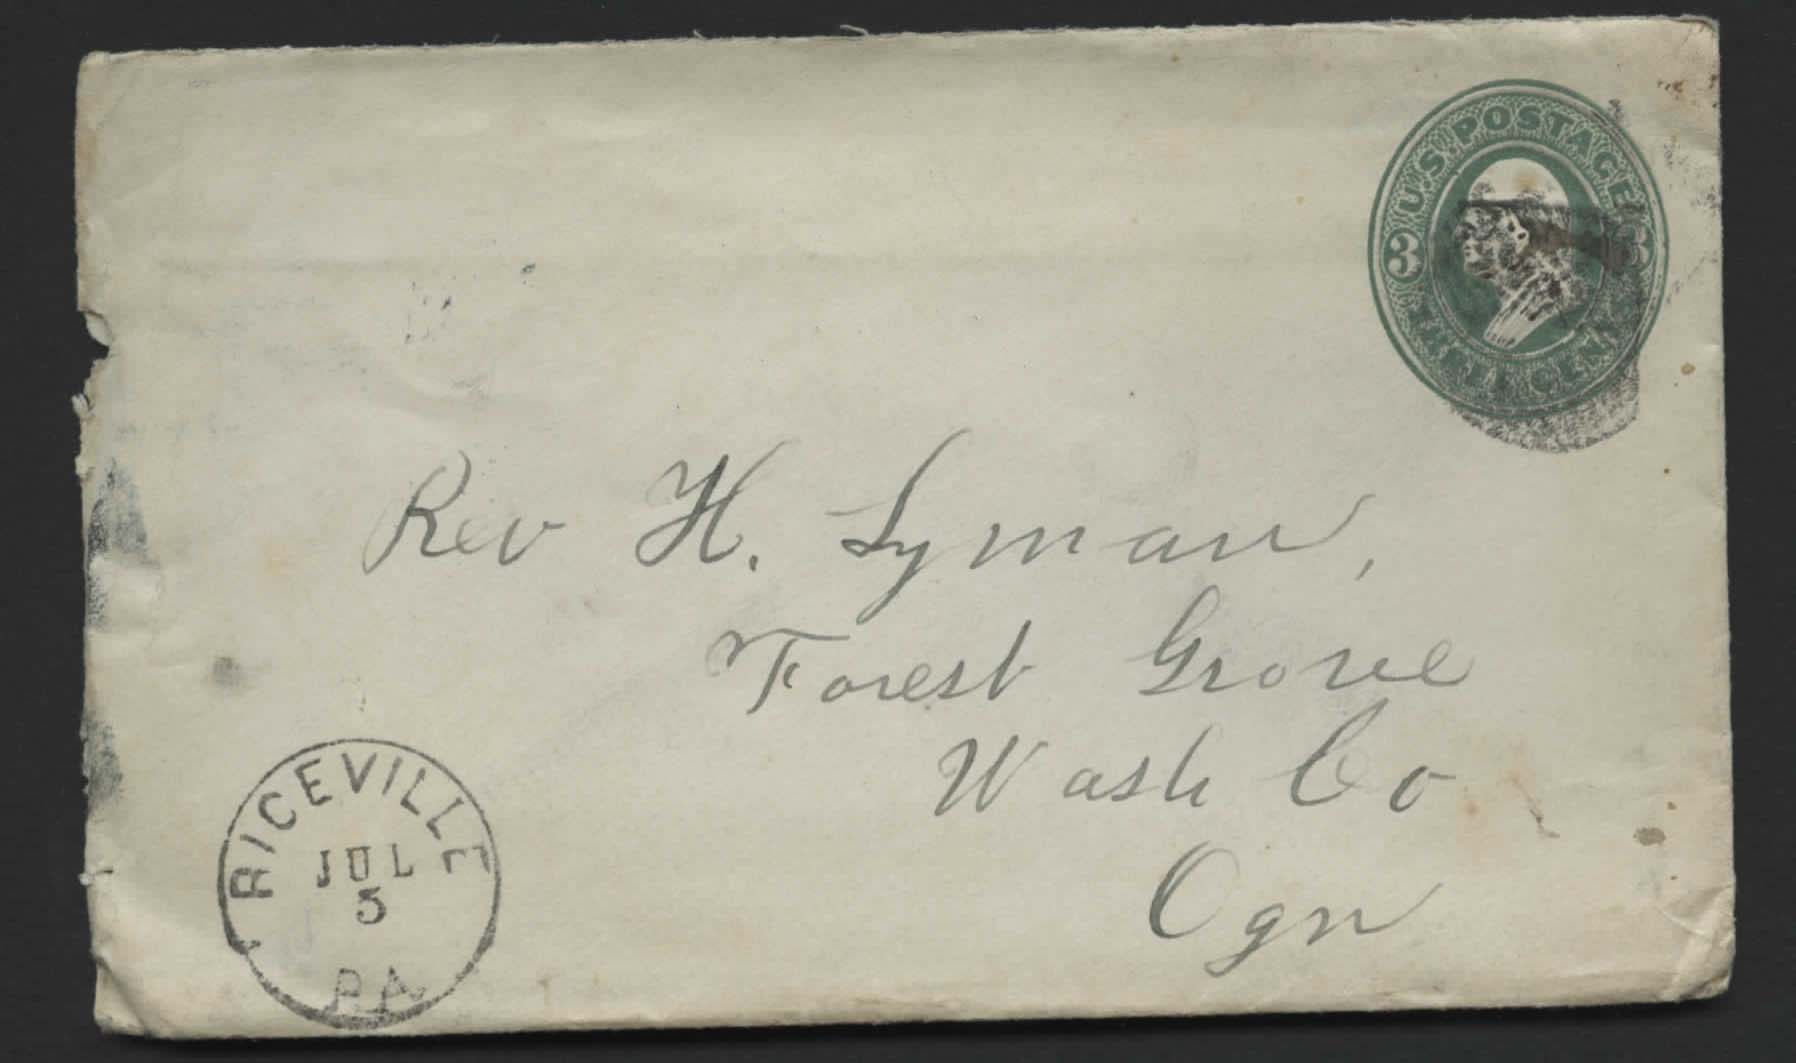 U.S. POSTAGE
3 3
THREE CENTS
Rev H. Lyman,
Forest Grove
Wash Co
Ogn
RICEVILLE
JUL
5
PA